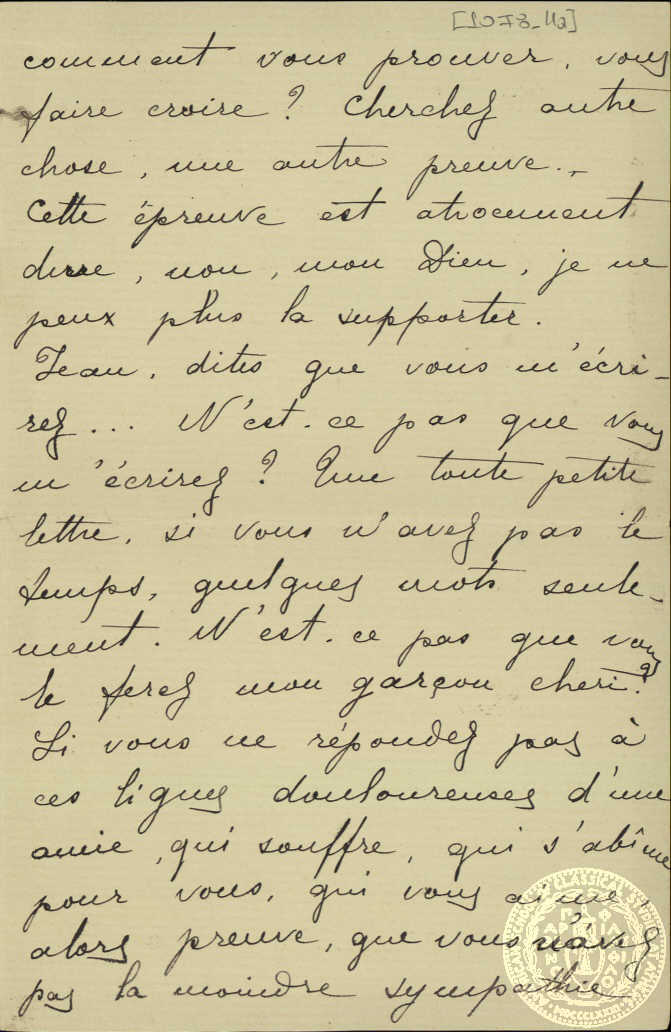 [1073-11a]
comment vous prouver, vous
faire croire? Cherchez autre
chose, une autre preuve..
Cette épreuve est atrocement
dure, non, mon Dieu, je ne
peux plus la supporter.
Jean, dites que vous m'écri-
rez... N'est-ce pas que vous
m'écrirez? Une toute petite
lettre, si vous n'avez pas le
temps, quelques mots seule-
ment. N'est-ce pas que vous
le ferez mon garçon cheri?
Si vous ne répondez pas à
ces lignes douloureuses d'une
amie, qui souffre, qui s'abîme
pour vous, qui vous aime,
alors preuve, que vous n'avez
pas la moindre sympathie